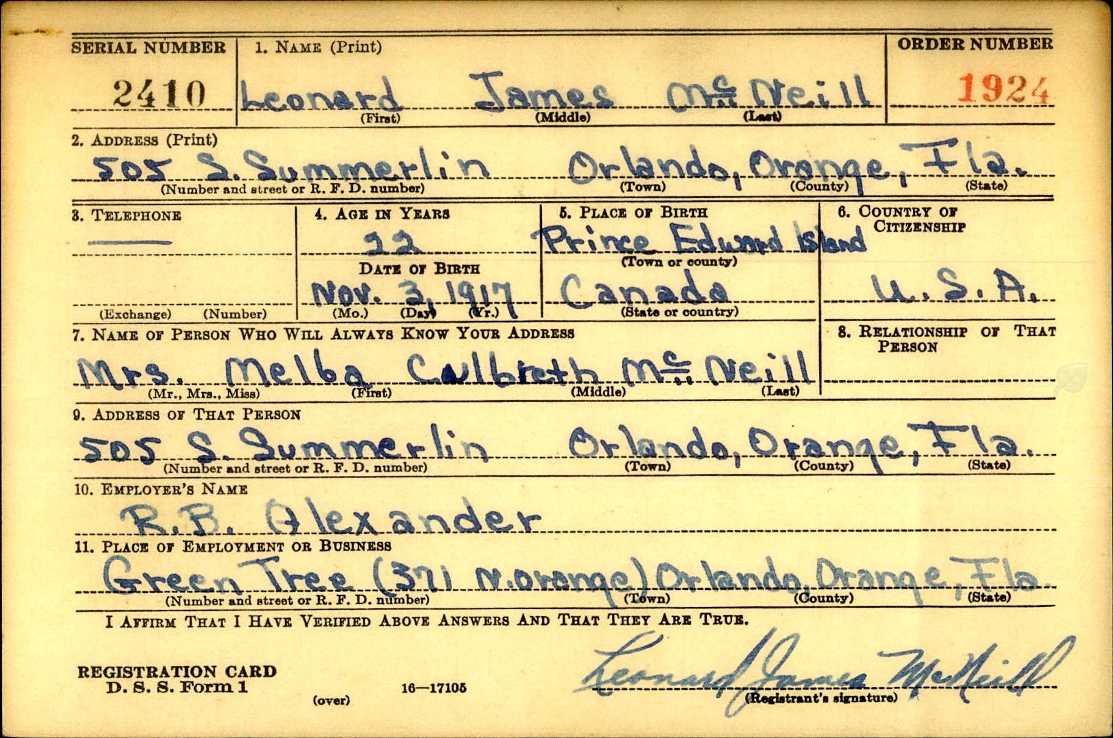 SERIAL NUMBER 1. NAME (Print) ORDER NUMBER
2410 Leonard James McNeill 1924
(First) (Middle) (Last)
2. ADDRESS (Print)
505 S. Summerlin Orlando, Orange, Fla.
(Number and street or R. F. D. number) (Town) (County) (State)
3. TELEPHONE 4. AGE IN YEARS 5. PLACE OF BIRTH 6. COUNTRY OF CITIZENSHIP
— 22 Prince Edward Island
DATE OF BIRTH (Town or county)
Nov. 3, 1917 Canada U.S.A.
(Exchange) (Number) (Mo.) (Day) (Yr.) (State or country)
7. NAME OF PERSON WHO WILL ALWAYS KNOW YOUR ADDRESS 8. RELATIONSHIP OF THAT PERSON
Mrs. Melba Culbreth McNeill
(Mr., Mrs., Miss) (First) (Middle) (Last)
9. ADDRESS OF THAT PERSON
505 S. Summerlin Orlando, Orange, Fla.
(Number and street or R. F. D. number) (Town) (County) (State)
10. EMPLOYER'S NAME
R.B. Alexander
11. PLACE OF EMPLOYMENT OR BUSINESS
Green Tree (371 N. Orange) Orlando, Orange, Fla
(Number and street or R. F. D. number) (Town) (County) (State)
I AFFIRM THAT I HAVE VERIFIED ABOVE ANSWERS AND THAT THEY ARE TRUE.
REGISTRATION CARD
D. S. S. Form 1 16—17105 Leonard James McNeill
(over) (Registrant's signature)